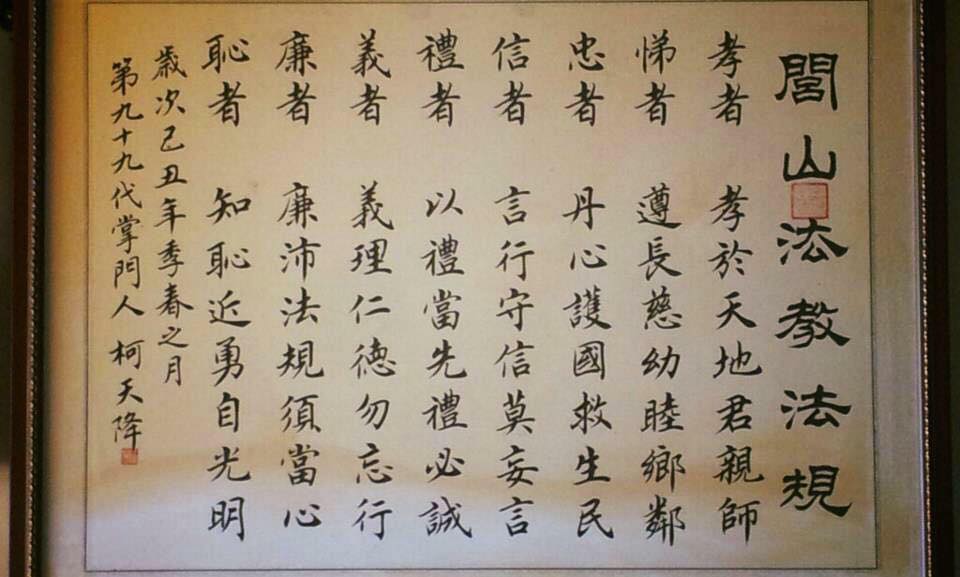 閭山法教法規
孝者 孝於天地君親師
悌者 遵長慈幼睦鄉鄰
忠者 丹心護國救生民
信者 言行守信莫妄言
禮者 以禮當先禮必誠
義者 義理仁德勿忘行
廉者 廉沛法規須當心
恥者 知恥近勇自光明
歲次己丑年季春之月
第九十九代掌門人 柯天降